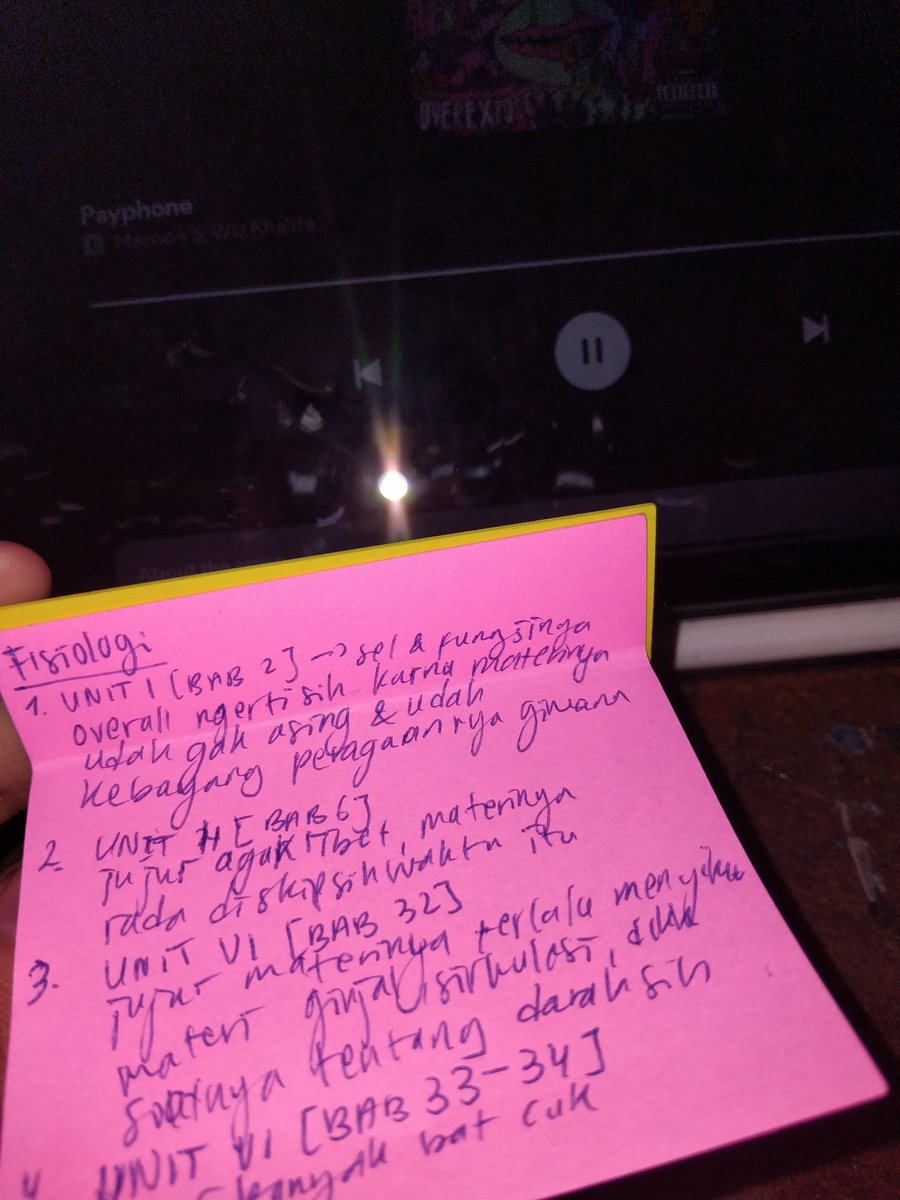 OVEREXPOSED
Payphone
Maroon 5, Wiz Khalifa
About the
Fisiologi:
1. UNIT I [BAB 2] → sel & fungsinya
overall ngerti sih karna materinya
udah gak asing & udah
kebayang peragaannya gimana
2. UNIT II [BAB 6]
jujur agak ribet, materinya
rada diskip sih waktu itu
3. UNIT VI [BAB 32]
jujur materinya terlalu
materi ginjal, sirkulasi,
soalnya tentang darah sih
4. UNIT VI [BAB 33-34]
banyak bat cuk